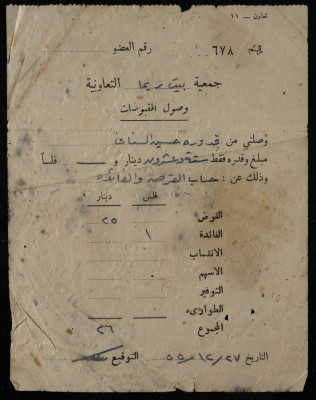 تعاون – ١١
الرقم ٦٧٨ رقم العضو
جمعية بيت ريما التعاونية
وصول المقبوضات
وصلني من قدوره حسين
مبلغ وقدره فقط ستة وعشرون دينار و — فلساً
وذلك عن: حساب القرض والفائده
فلس دينار
القرض ٢٥
الفائدة ١
الانتساب
الاسهم
التوفير
الطوارىء
المجموع ٢٦
التاريخ ٢٧/١٢/٥٥ التوقيع